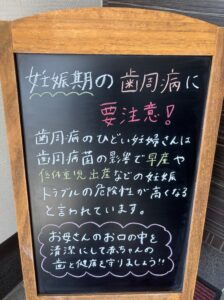 妊娠期の歯周病に
要注意!
歯周病のひどい妊婦さんは
歯周病菌の影響で早産や
低体重児出産などの妊娠
トラブルの危険性が高くなる
と言われています。
お母さんのお口の中を
清潔にして赤ちゃんの
歯と健康を守りましょう!!